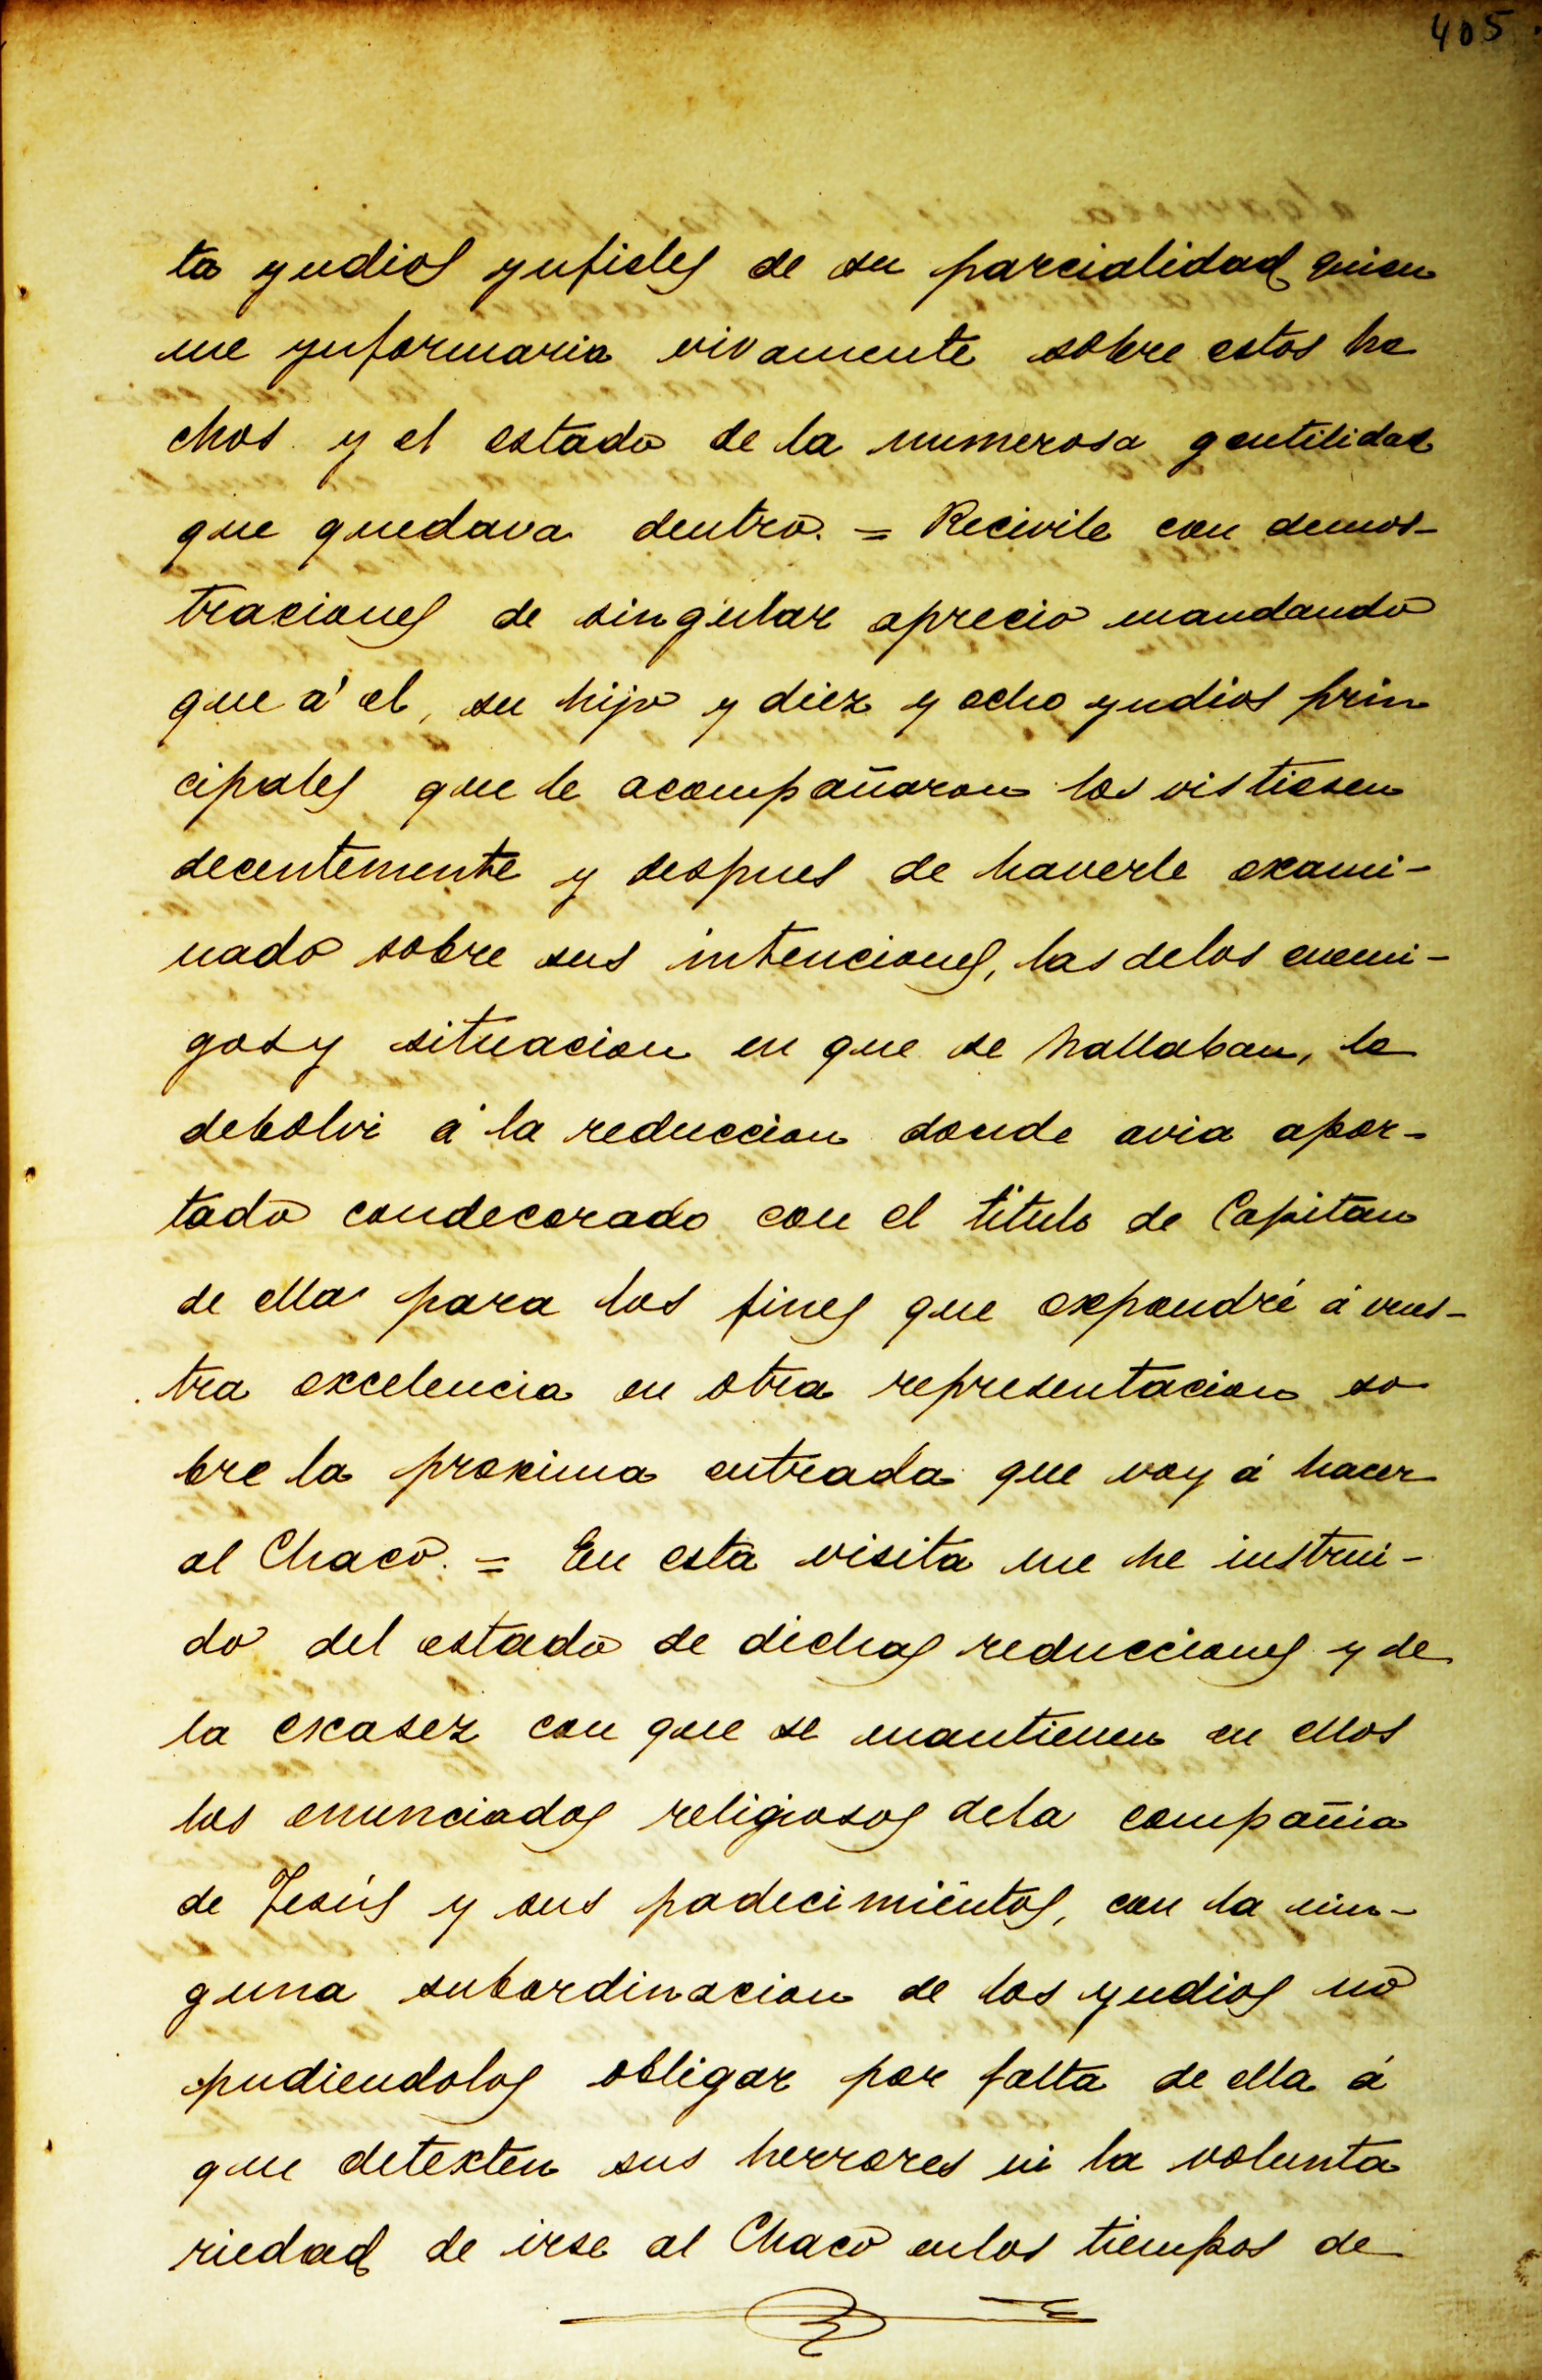 405.
ta yndios ynfieles de su parcialidad quien
me ynformaria vivamente sobre estos he
chos y el estado de la numerosa gentilidad
que quedava dentro. = Recivile con demos-
traciones de singular aprecio mandando
que á el, su hijo y diez y ocho yndios prin
cipales que le acompañaron los vistiesen
decentemente y despues de haverle exami-
nado sobre sus intenciones, las delos enemi-
gos y situacion en que se hallaban, lo
debolvi á la reduccion donde avia apor-
tado condecorado con el titulo de Capitan
de ella para los fines que expondré á vues-
tra excelencia en otra representacion so
bre la proxima entrada que voy á hacer
al Chaco. = En esta visita me he instrui-
do del estado de dichas reducciones y de
la escasez con que se mantienen en ellos
los enunciados religiosos dela compañia
de Jesús y sus padecimientos, con la nin-
guna subordinacion de los yndios no
pudiendolos obligar por falta de ella á
que detexten sus herrores ni la volunta
riedad de irse al Chaco enlos tiempos de